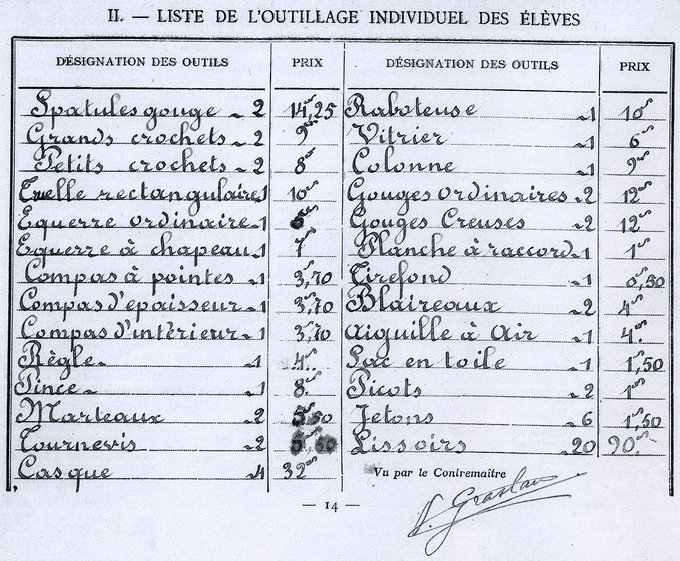 II. — LISTE DE L'OUTILLAGE INDIVIDUEL DES ÉLÈVES
DÉSIGNATION DES OUTILS PRIX
Spatules gouge - 2 14,25
Grands crochets - 2 9"
Petits crochets - 2 8"
Truelle rectangulaire 1 10"
Equerre ordinaire - 1
Equerre à chapeau - 1 7"
Compas à pointes - 1 3,70
Compas d'epaisseur - 1 3,70
Compas d'intérieur - 1 3,70
Règle - 1 4"
Pince - 1 8"
Marteaux - 2 5,50
Tournevis - 2
Casque - 4 32"
DÉSIGNATION DES OUTILS PRIX
Raboteuse - 1 10"
Vitrier - 1 6"
Colonne - 1 9"
Gouges ordinaires - 2 12"
Gouges Creuses - 2 12"
Planche à raccord - 1 1"
Tirefond - 1 0,50
Blaireaux - 2 4"
Aiguille à Air - 1 4"
Sac en toile - 1 1,50
Picots - 2 1"
Jetons - 6 1,50
Lissoirs - 20 90"
Vu par le Contremaître
— 14 —